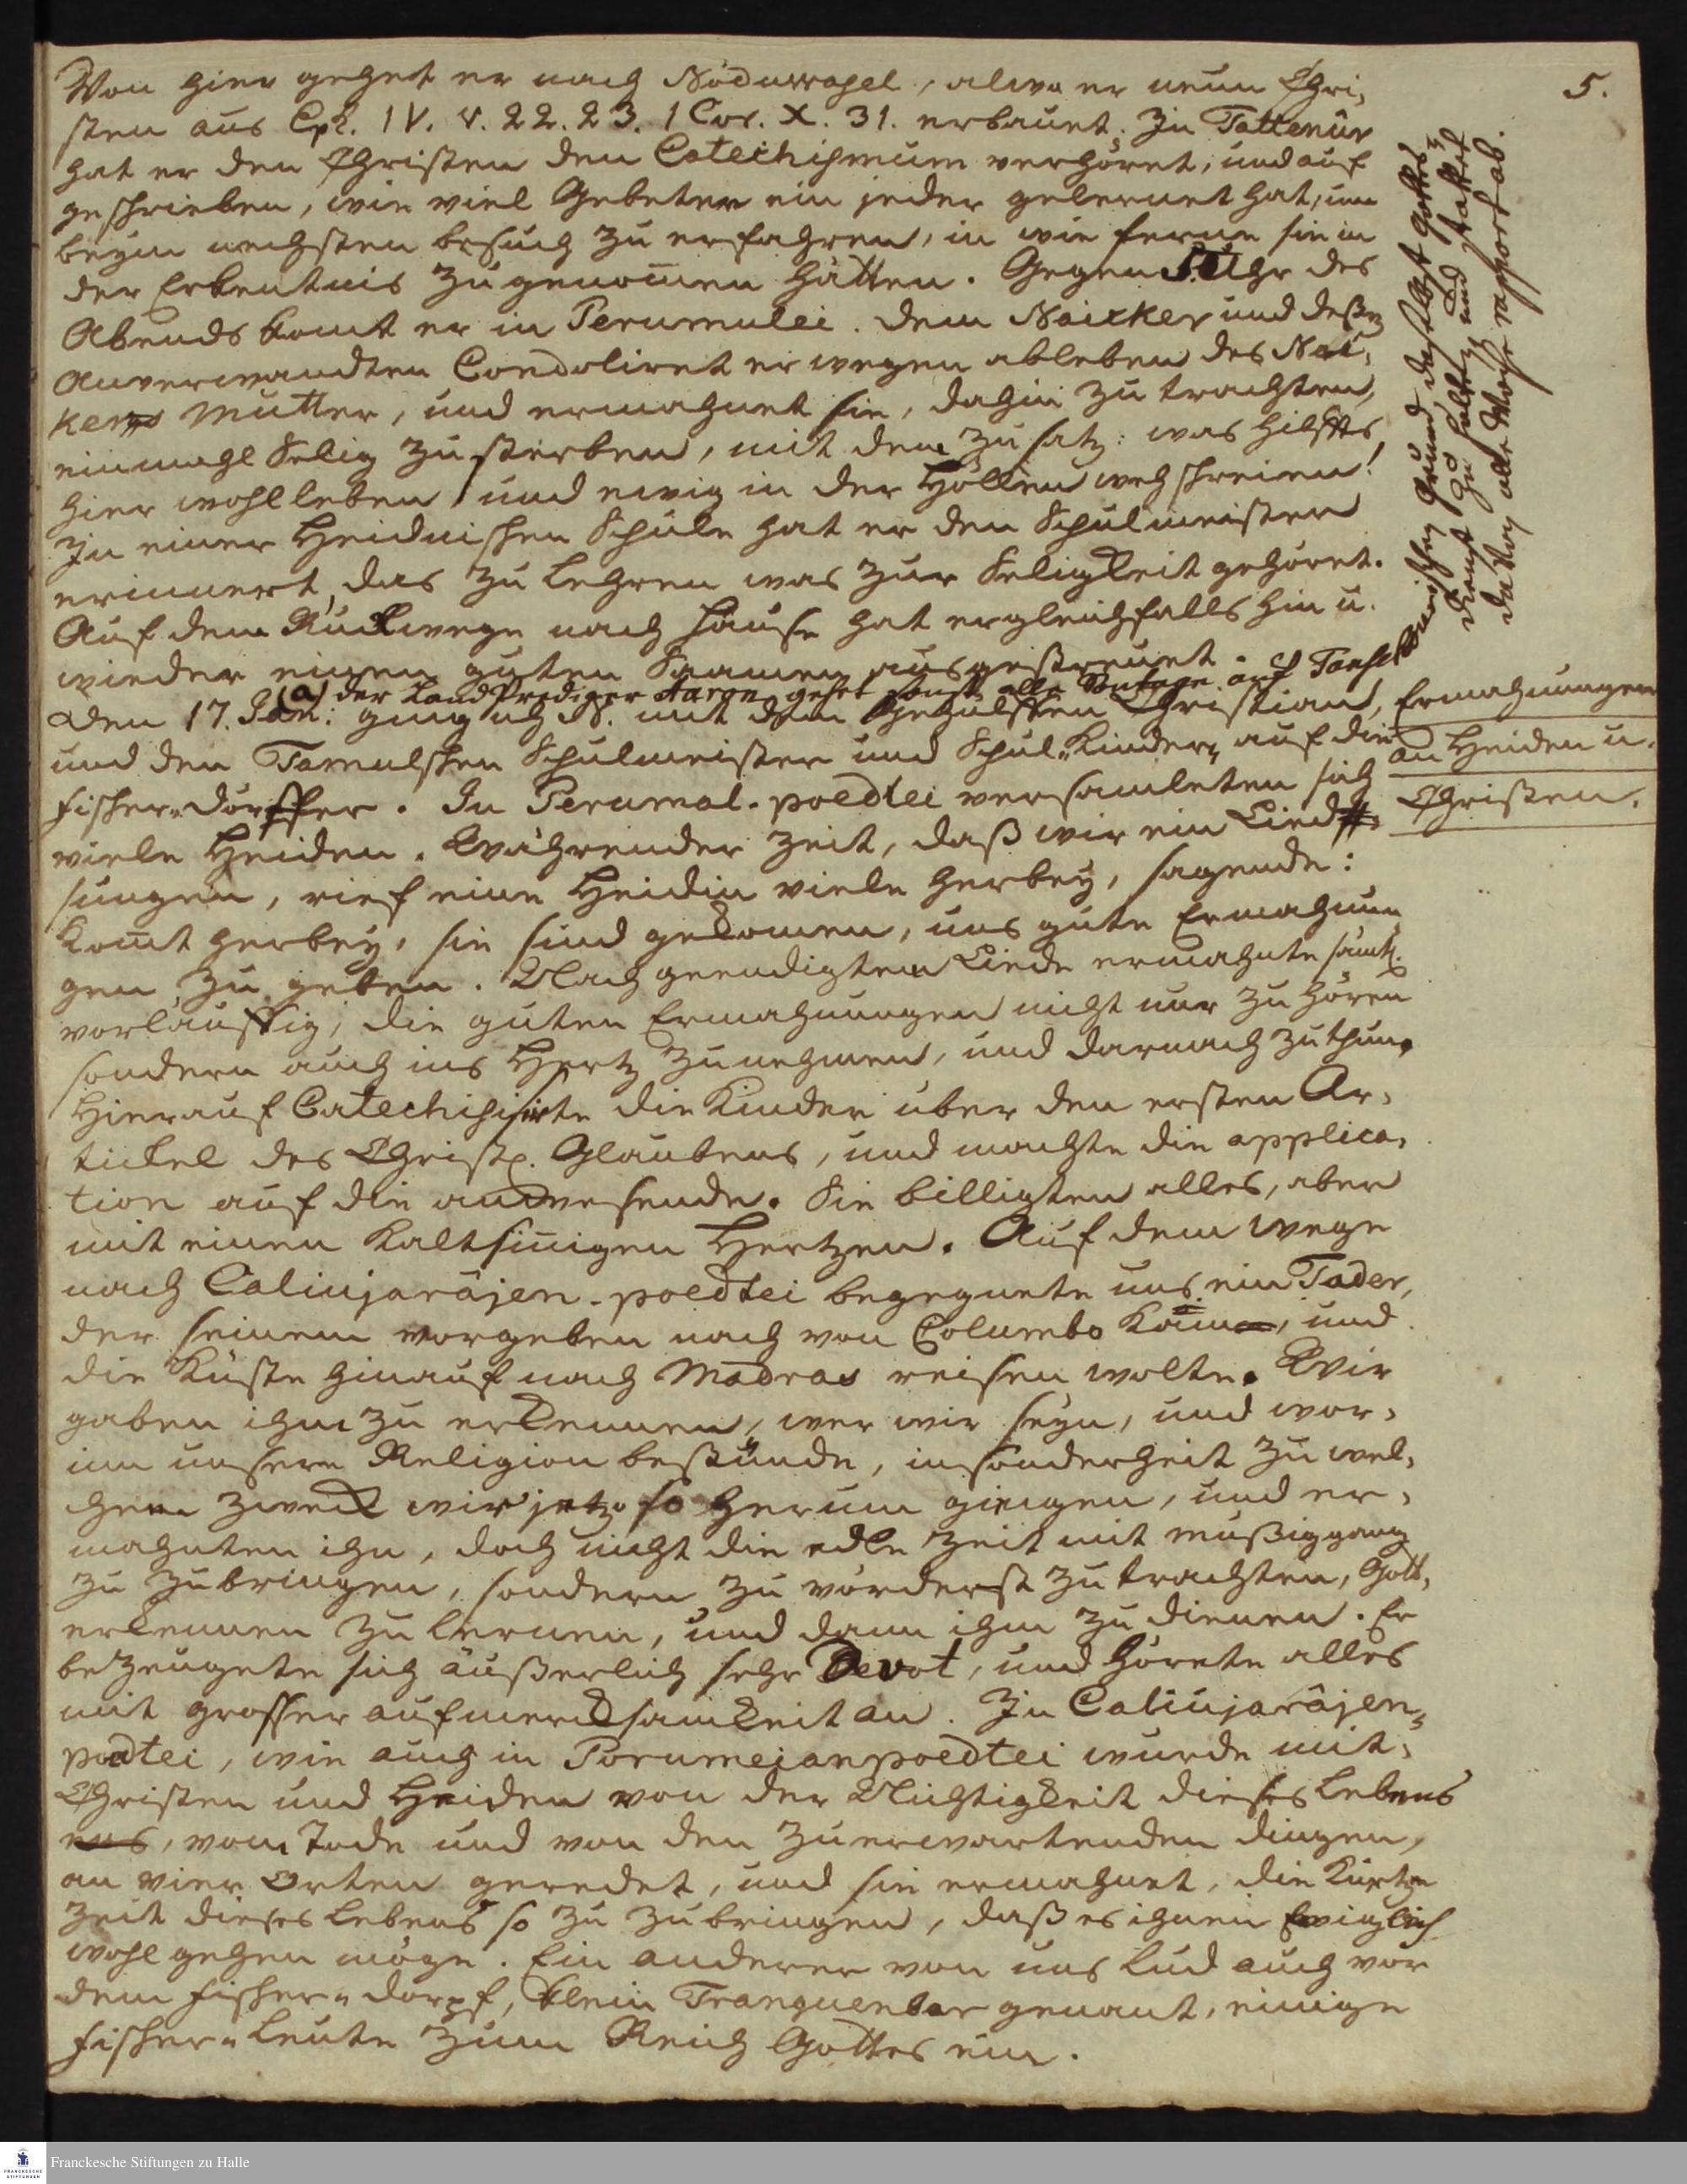 5.
Von hier gehet er nach Noduwasel, alwo er neun Chri,
sten aus Eph. IV. v. 22. 23. 1 Cor. X. 31. erbauet. In Tattenúr
hat er den Christen den Catechismum verhöret, und auf
geschrieben, wie viel Gebeter ein jeder gelernet hat, um
beym nechsten besuch zu erfahren, in wie ferne sie in
der Erkentnis zugenom̄en hätten. Gegen 5. Uhr des
Abends komt er in Perumulei. dem Naicker und deßen
Anverwandten Condoliret er wegen ableben des Nai,
kers Mutter, und ermahnet sie, dahin zu trachten,
einmahl Selig zu sterben, mit dem zusatz: was hilffts,
hier wohlleben, und ewig in der Höllen weh schreien!
In einer Heidnischen Schule hat er den Schulmeister
erinnert, das zu lehren was zur Seligkeit gehöret.
Auf dem Rückwege nach Hause hat er gleichfalls hin u.
wieder einen guten Saamen ausgestreuet.
(a) der LandPrediger Aaron gehet sonst alle auf
den 17. Jan: ging ich S. mit dem Gehülffen Christian,
und den Tamulschen Schulmeister und Schul-Kindern auf die
Fischer-Dörffer. In Perumal-poedtei versamleten sich
viele Heiden. Während der Zeit, daß wir ein Lied
sungen, rief eine Heidin viele herbey, sagende:
Kom̄t herbey, sie sind gekomen, uns gute Ermahnun
gen zu geben. Nach geendigtem Liede ermahnte sämtl.
vorläuffig, die guten Ermahnungen nicht nur zu hören
sondern auch ins Hertz zu nehmen, und darnach zu thun.
Hierauf Catechisirte die Kinder über den ersten Ar,
tickel des Christl. Glaubens, und machte die applica,
tion auf die anwesende. Sie billigten alles, aber
mit einen kaltsin̄igen Hertzen. Auf dem wege
nach Calinjaräjen-poedtei begegnete uns ein Tader,
der seinem vorgeben nach von Columbo kam, und
die Küste hinauf nach Madras reisen wolte. Wir
gaben ihm zu erkennen, wer wir seyn, und wor,
inn unsere Religion bestünde, insonderheit zu wel,
chem zweck wir jetzo so herum giengen, und er,
mahnten ihn, doch nicht die edle Zeit mit müßiggang
zu zubringen, sondern zu vörderst zu trachten, Gott,
erkennen zu lernen, und dann ihm zu dienen. Er
bezeugete sich äußerlich sehr Devot, und hörete alles
mit grosser aufmercksamkeit an. In Calinjaräjen,
poedtei, wie auch in Porumeianpoedtei wurde mit,
Christen und Heiden von der Nichtigkeit dieses Lebens
ens, vom Tode und von den zuerwartenden dingen,
an vier Orten geredet, und sie ermahnet, die kurtze
Zeit dieses Lebens so zu zubringen, daß es ihnen Ewiglich
wohl gehen möge. Ein anderer von uns lud auch vor
dem Fischer-Dorf, klein Tranquenbar genant, einige
Fischer-Leute zum Reich Gottes ein.
Grund, daselbst Gottes
dienst zu halten und stattet
davon alle Woche rapport ab.
Ermahnungen
an Heiden u.
Christen.
FRANCKESCHE STIFTUNGEN
Franckesche Stiftungen zu Halle